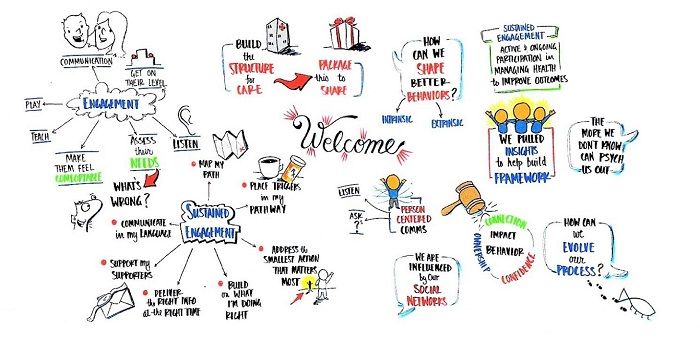 COMMUNICATION
GET ON
THEIR LEVEL
ENGAGEMENT
PLAY
TEACH
MAKE
THEM FEEL
COMFORTABLE
ASSESS
their
NEEDS
LISTEN
WHAT'S
WRONG?
MAP MY
PATH
PLACE TRIGGERS
in MY
PATHWAY
SUSTAINED
ENGAGEMENT
COMMUNICATE
in MY LANGUAGE
SUPPORT MY
SUPPORTERS
DELIVER
the RIGHT INFO
at the RIGHT TIME
BUILD
ON WHAT
I'M DOING
RIGHT
ADDRESS the
SMALLEST ACTION
THAT MATTERS
MOST
BUILD
the
STRUCTURE
for
CARE
PACKAGE
this to
SHARE
Welcome
HOW
CAN WE
SHAPE
BETTER
BEHAVIORS?
INTRINSIC
EXTRINSIC
SUSTAINED
ENGAGEMENT
ACTIVE & ONGOING
PARTICIPATION in
MANAGING HEALTH
to IMPROVE OUTCOMES
WE PULLED
INSIGHTS
to help build
FRAMEWORK
THE
MORE WE
DON'T KNOW
CAN PSYCH
US OUT
LISTEN
ASK
?
PERSON
CENTERED
COMMS
CONNECTION
IMPACT
BEHAVIOR
OWNERSHIP
CONFIDENCE
WE ARE
INFLUENCED
by OUR
SOCIAL
NETWORKS
HOW CAN
WE
EVOLVE
OUR
PROCESS?